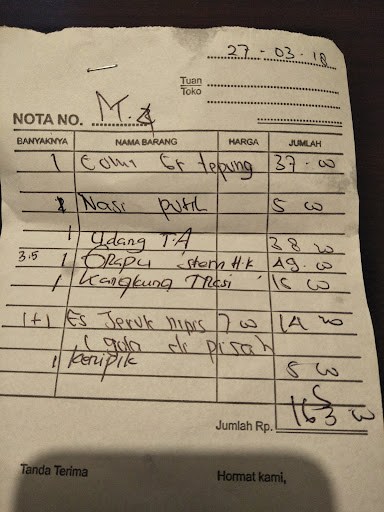 27 - 03 - 18
Tuan
Toko
NOTA NO. M.4
BANYAKNYA NAMA BARANG HARGA JUMLAH
1 Cumi Gr tepung 37.00
1 Nasi putih 5 00
1 Udang T.A 38 00
3.5 1 49.00
1 Kangkung Trasi 15 00
1+1 Es Jeruk nipis 7 00 14 00
1 gula di pisah
1 Keripik 5 00
Jumlah Rp. 163 00
Tanda Terima Hormat kami,